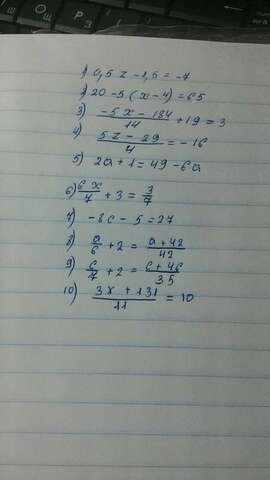 1) 0,5 z - 1,5 = -7
2) 20 - 5 (x - 4) = 65
3) (-5x - 184)/14 + 19 = 3
4) (5z - 29)/4 = - 16
5) 2a + 1 = 49 - 6a
6) 6x/7 + 3 = 3/7
7) -8c - 5 = 27
8) a/6 + 2 = (a + 42)/42
9) c/7 + 2 = (c + 46)/35
10) (3x + 131)/11 = 10